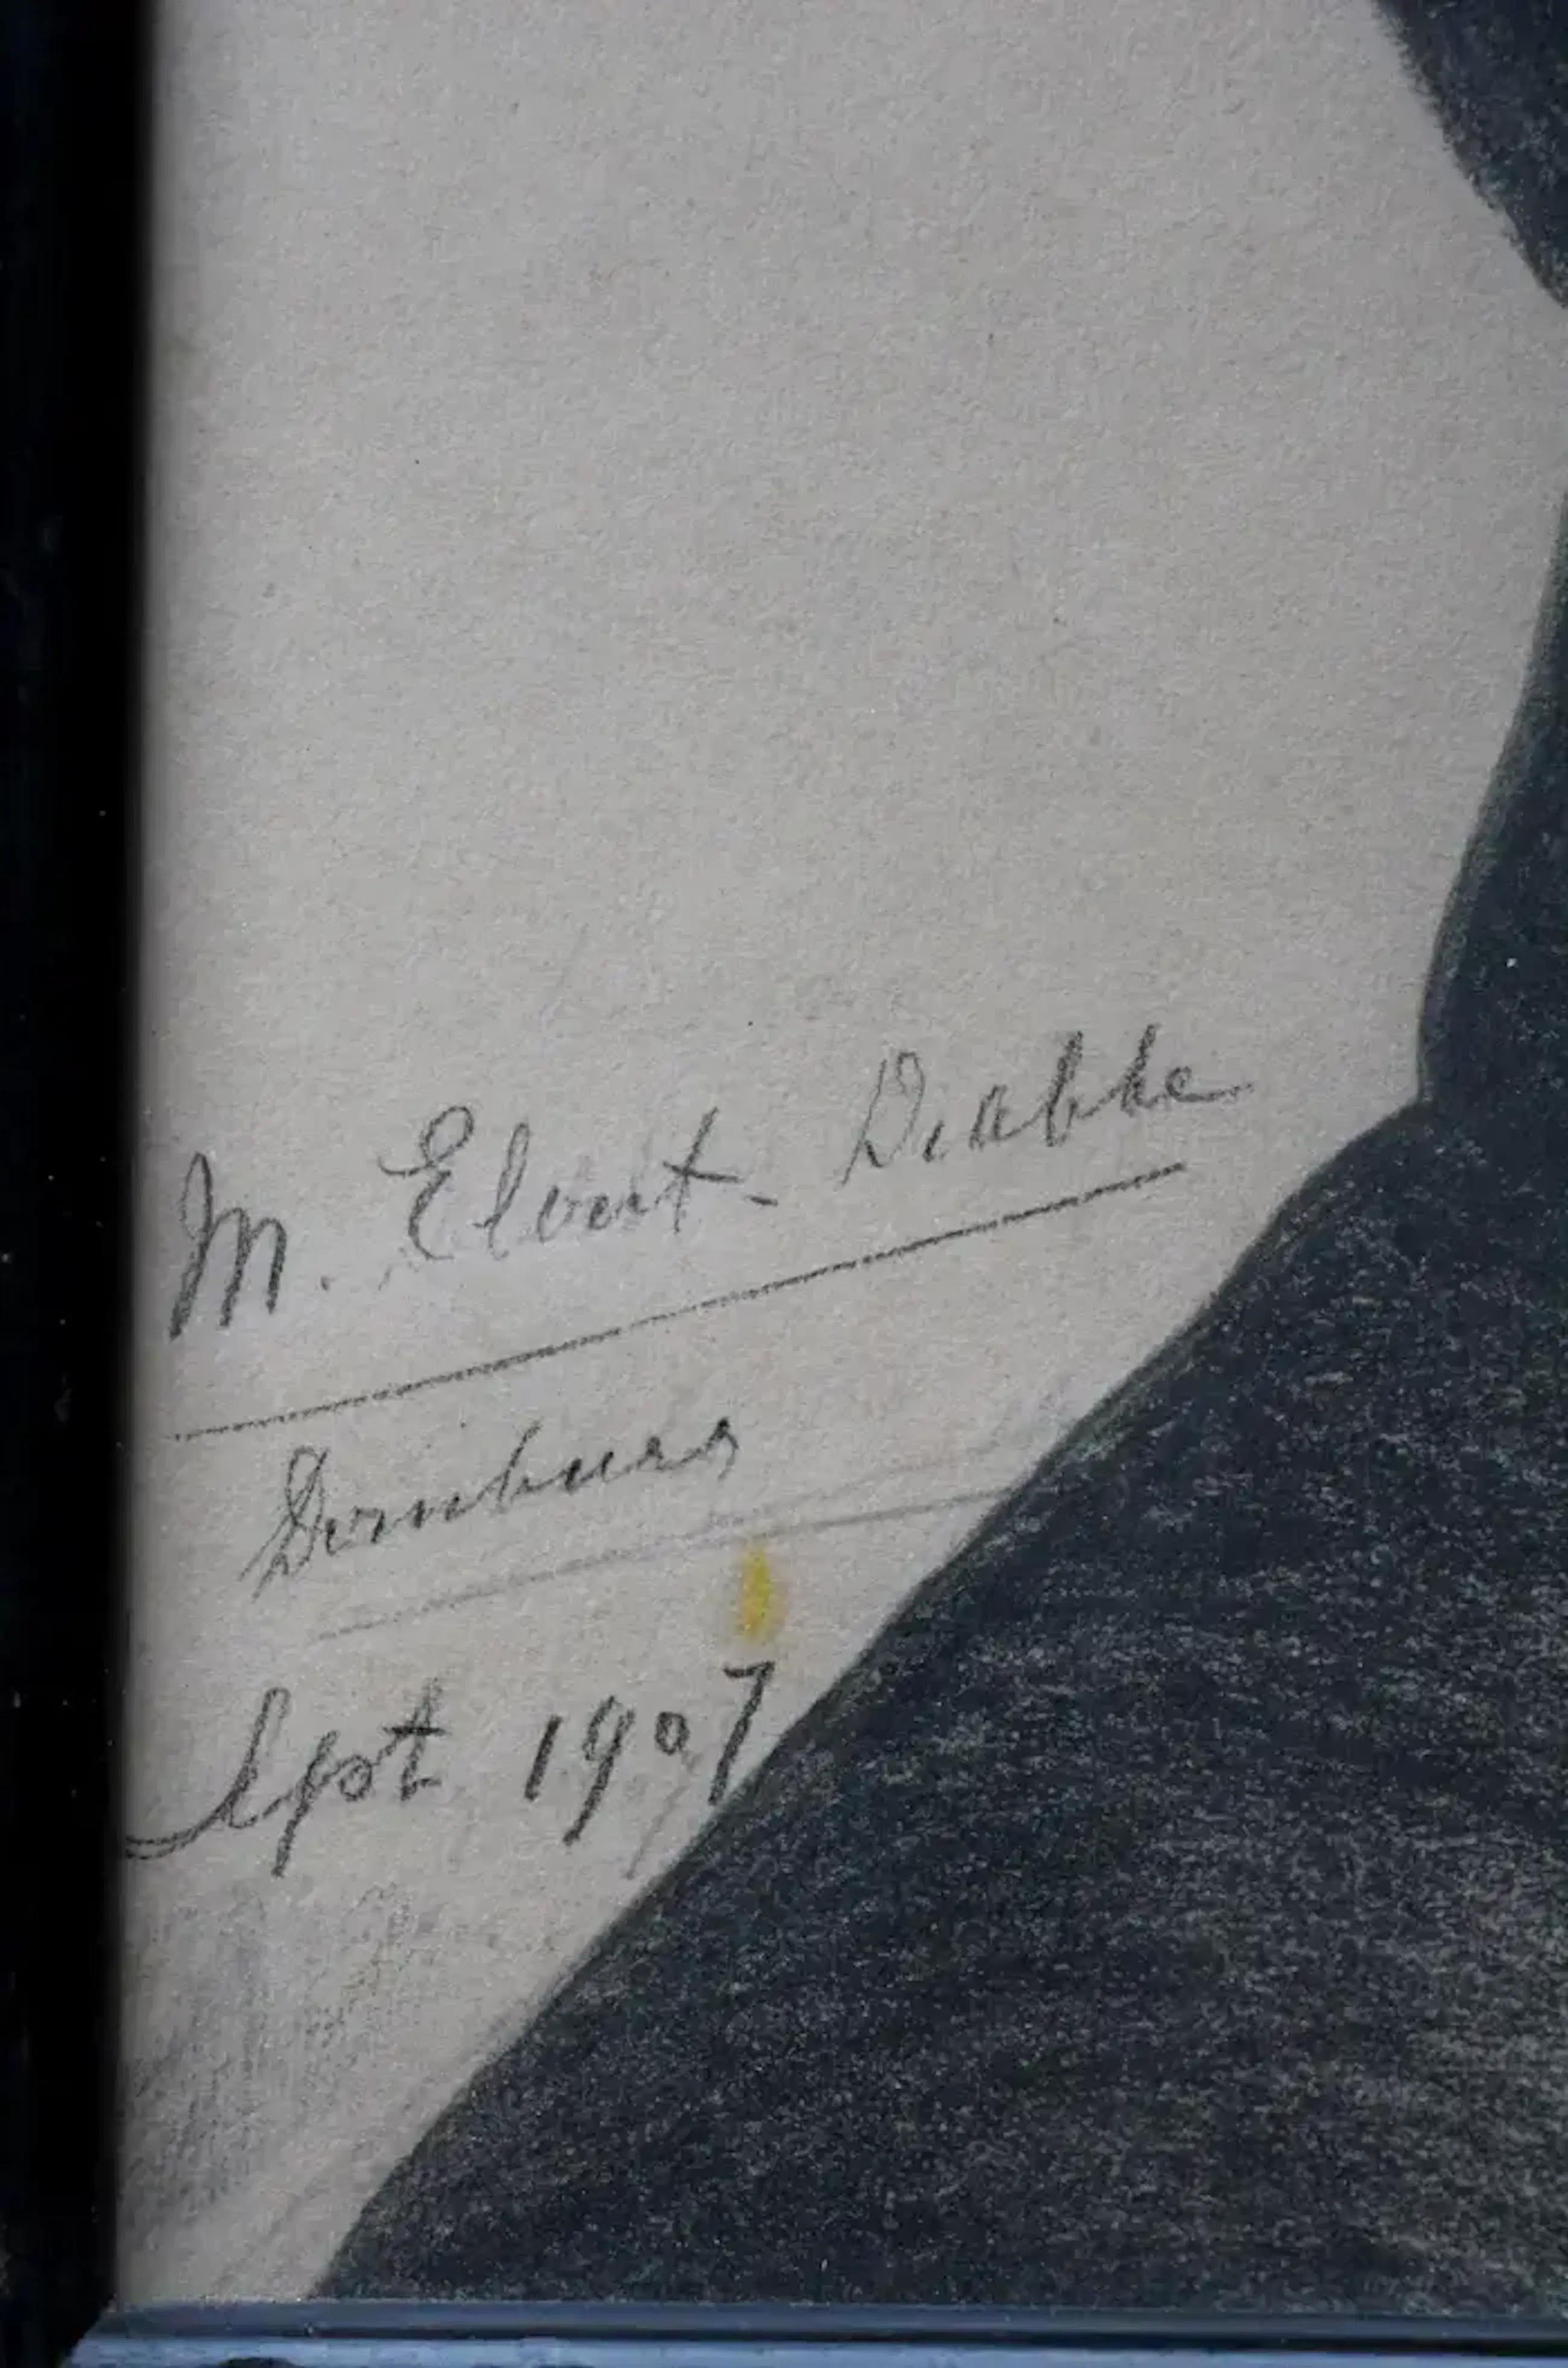 M. Elert-Drabke
Dornburg
Sept 1907